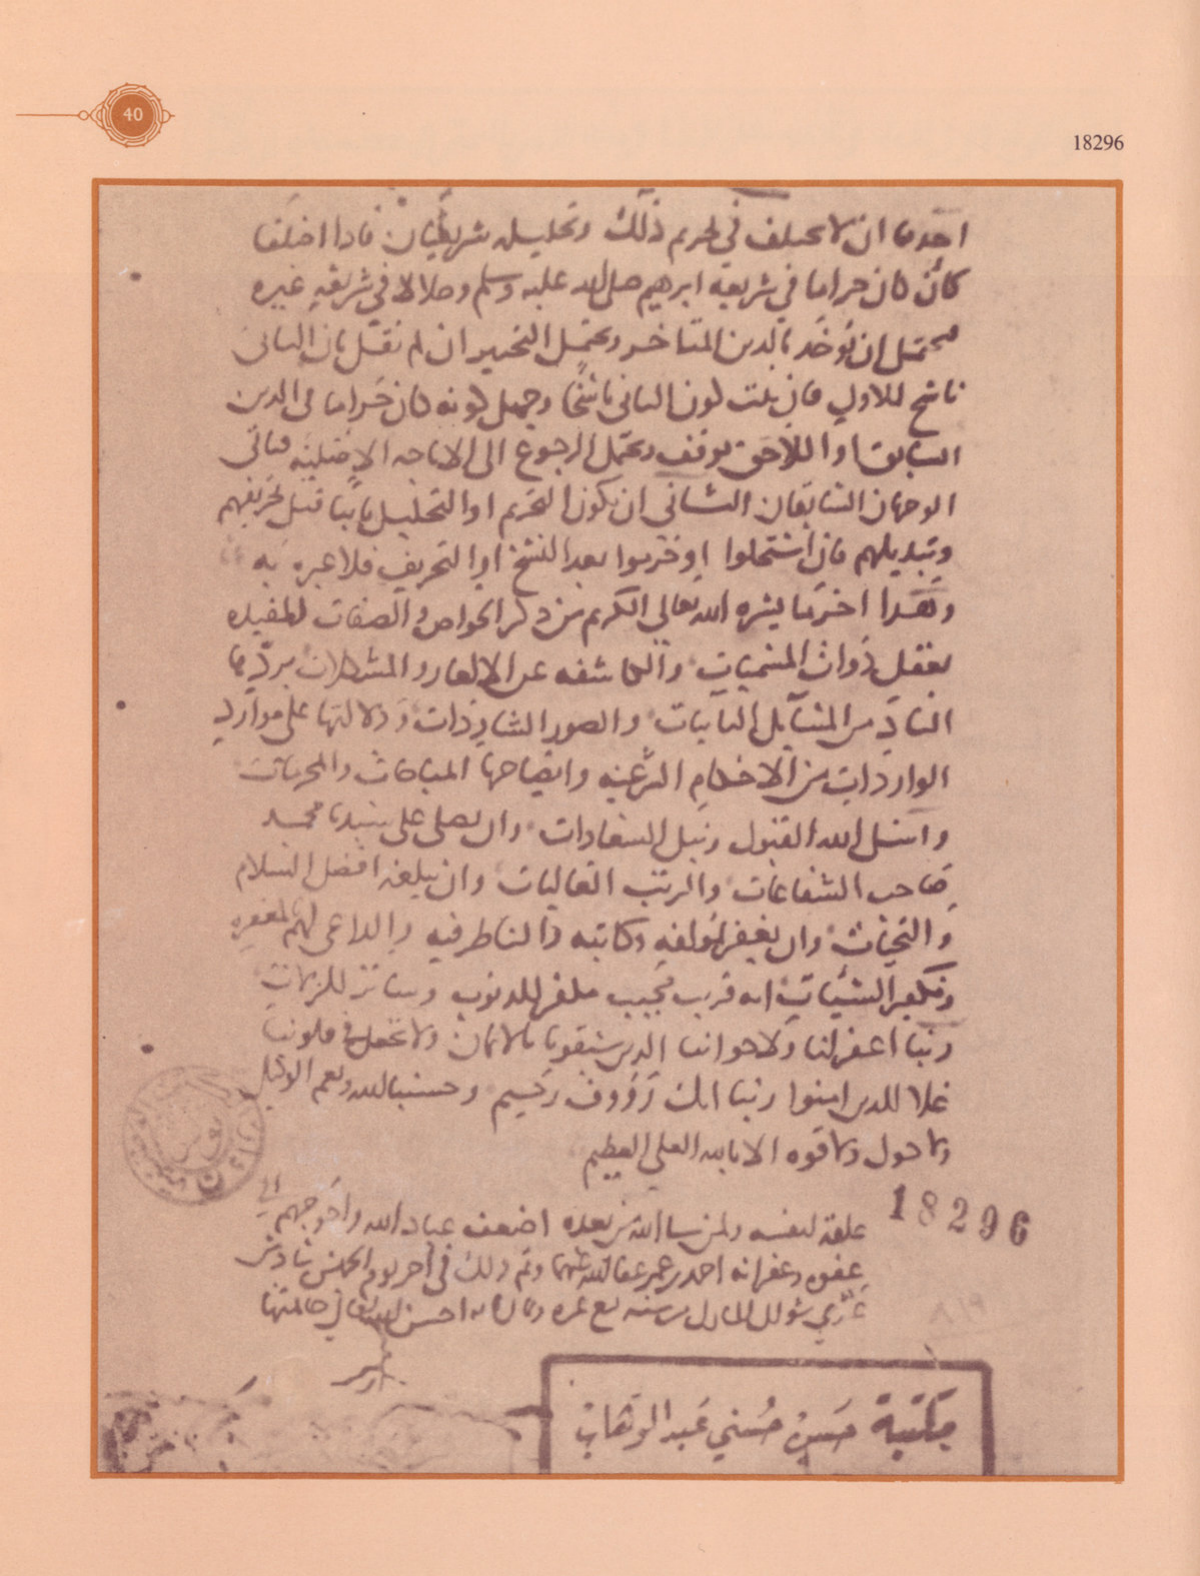 40
18296
احدها ان لا يختلف في تحريم ذلك وتحليله شريعتان فاذا اختلفا
كأن كان حراما في شريعة ابرهيم صلى الله عليه وسلم وحلالا في شريعة غيره
فيحتمل ان يؤخذ بالدين المتاخر ويحتمل التخيير ان لم نقل بان الثاني
ناسخ للاول فان ثبت كون الثاني ناسخا وجهل كونه كان حراما في الدين
السابق او اللاحق توقف ويحتمل الرجوع الى الاباحة الاصلية فياتي
الوجهان السابقان الثاني ان يكون التحريم او التحليل ثابتا قبل تحريفهم
وتبديلهم فان استحلوا او حرموا بعد النسخ او التحريف فلا عبرة به
وهذا اخر ما يسره الله تعالى الكريم من ذكر الخواص والصفات المفيدة
بعقل ذوات المسميات والكاشفة عن الالغاز والمشكلات برد ما
الناد من المسايل النائبات والصور الشاردات ودلالتها على موارد
الواردات من الاحكام الشرعية وايضاحها المباحات والمحرمات
واسئل الله القبول ونيل السعادات وان يصلي على سيدنا محمد
صاحب الشفاعات والرتب العاليات وان يبلغه افضل السلام
والتحيات وان يغفر لمؤلفه وكاتبه والناظر فيه والداعي لهم بالمغفرة
وتكفير السيئات انه قريب مجيب غافر للذنوب وساتر للزلات
ربنا اغفر لنا ولاخواننا الذين سبقونا بالايمان ولا تجعل في قلوبنا
غلا للذين امنوا ربنا انك رؤوف رحيم وحسبنا الله ونعم الوكيل
ولا حول ولا قوة الا بالله العلي العظيم
علقه لنفسه ولمن شا الله من بعده اضعف عباد الله واحوجهم الى
عفوه وغفرانه احمد بن عمر عفا الله عنهما وتم ذلك في اخر يوم الخميس سادس
عشري شوال المبارك من سنة تسع عشره وثمان مايه احسن الله تعالى خاتمتها
امين
18296
٨١٩
مكتبة حسن حسني عبد الوهاب